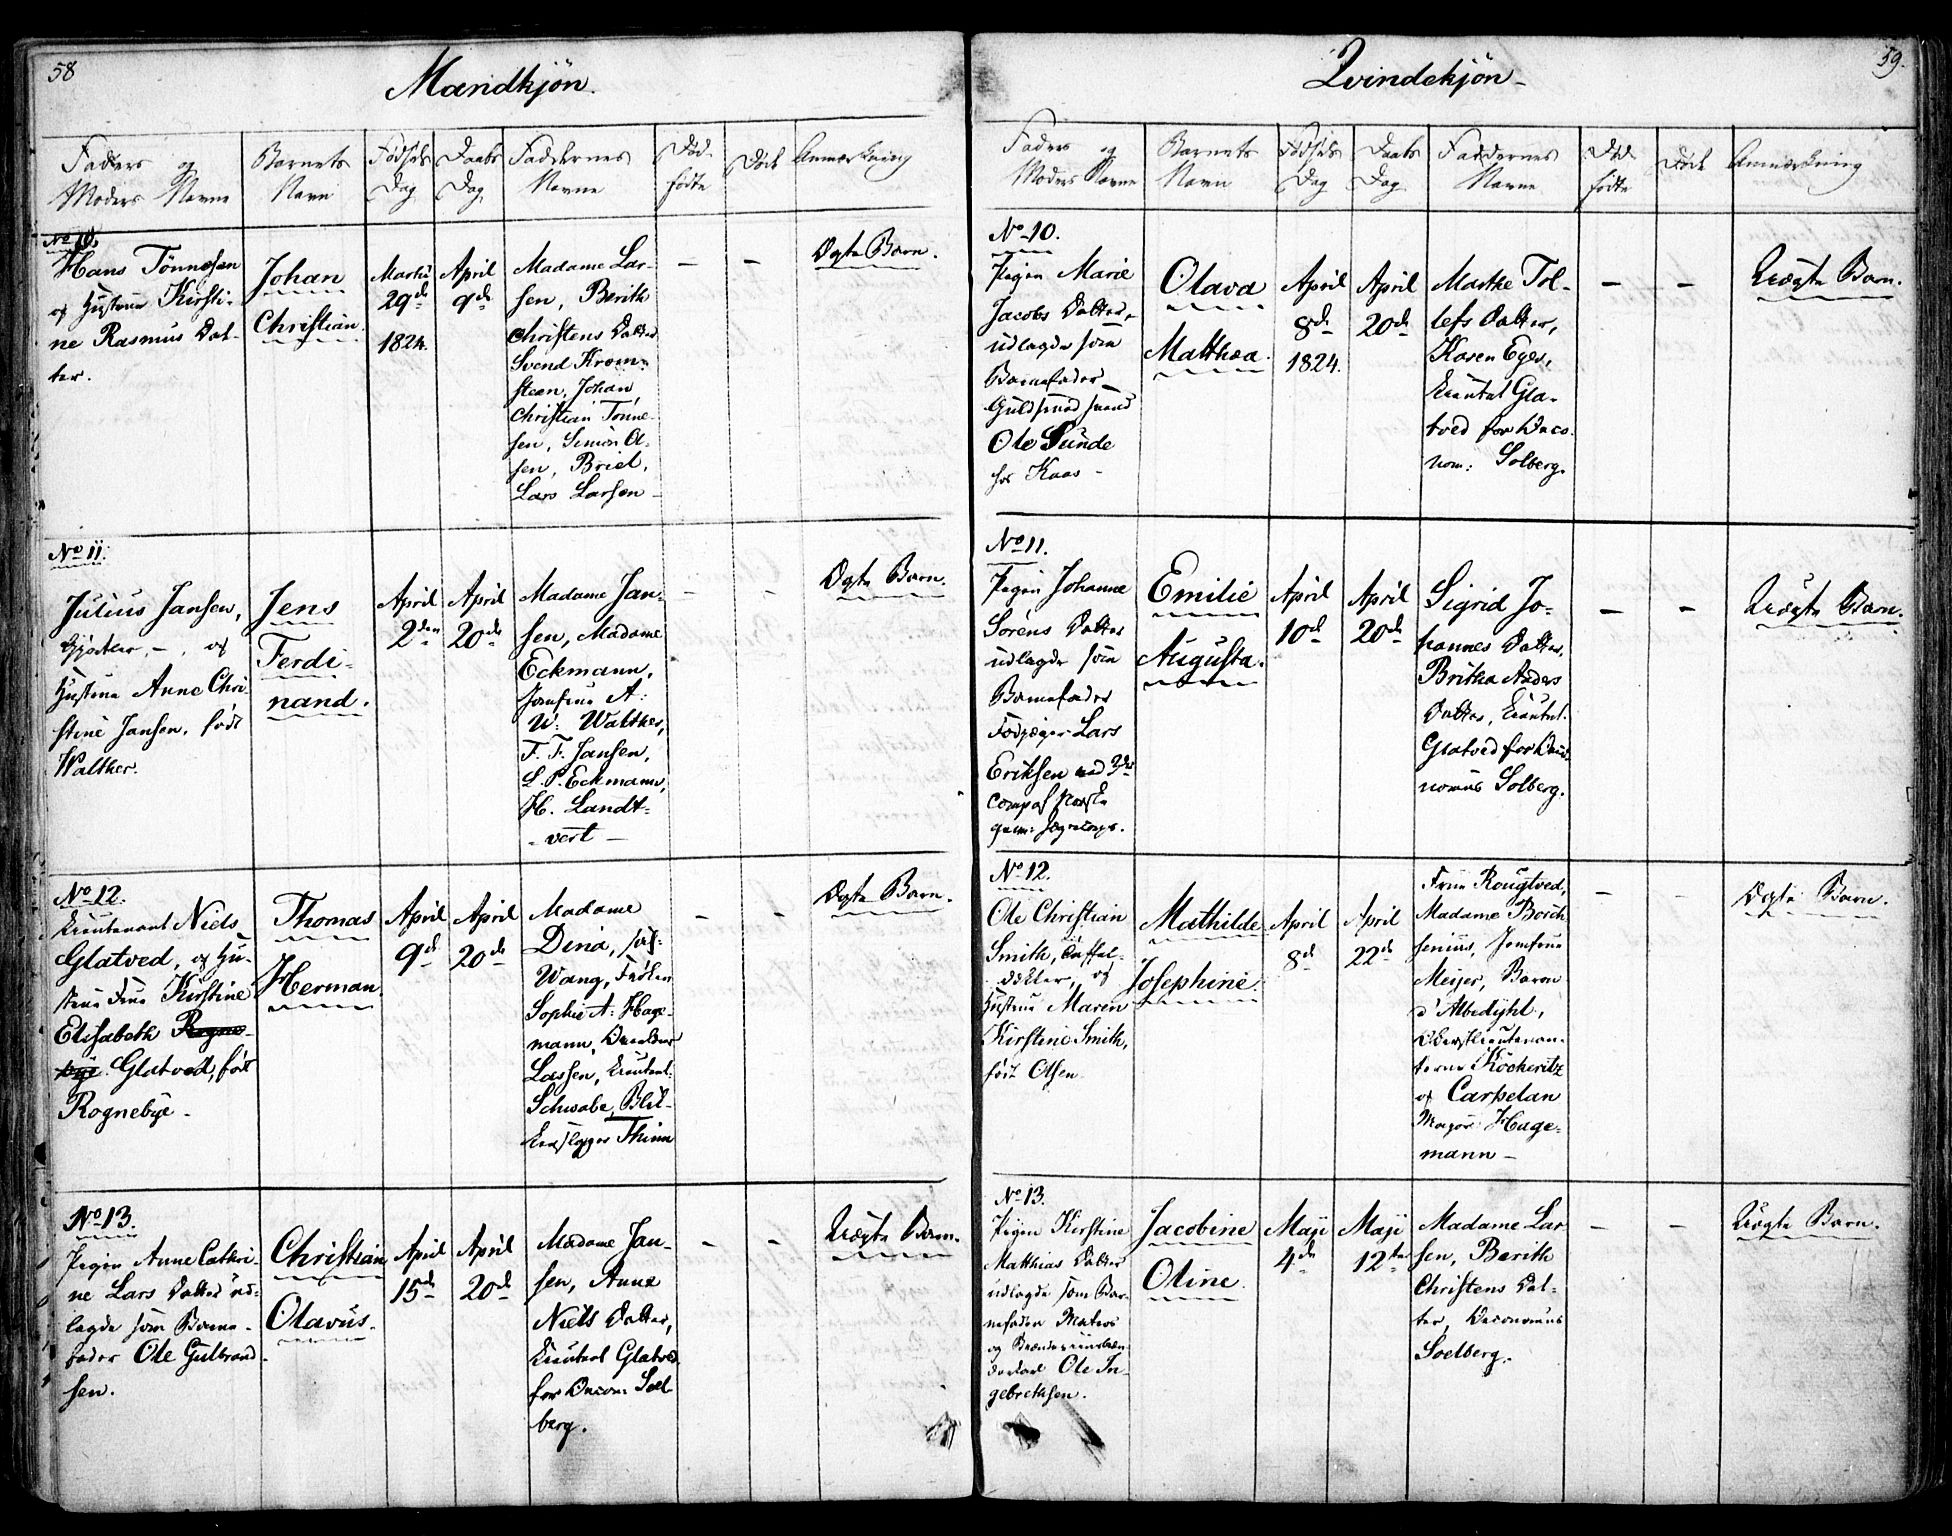 58
Mandkjön.
Faders og
Moders Navne
Barnets
Navn
Fødsels
Dag
Daabs
Dag
Faddernes
Navne
Død-
fødte
Døde
Anmærkning
No 10.
Hans Tönnesen
og Hustrue Kirsti-
ne Rasmus Dat-
ter.
Johan
Christian.
Martii
29de
1824.
April
9de
Madame Lar-
sen, Berith
Christens Datter
Svend Krom-
steen, Johan
Christian Tönne-
sen, Simon Ol-
sen, Briel,
Lars Larsen -
-
-
Ægte Barn.
No 11.
Julius Jansen,
Gjørtler, -, og
Hustrue Anne Chri-
stine Jansen, født
Walther.
Jens
Ferdi-
nand.
April
2den
April
20de
Madame Jan-
sen, Madame
Eckmann,
Jomfrue A:
W: Walther,
F. F. Jansen,
L. P. Eckmann,
H. Landt-
-vert -
-
-
Ægte Barn.
No 12.
Lieutenant Niels
Glatved, og Hu-
strue Frue Kirstine
Elisabeth Rogne-
bye Glatved, født
Rognebye -
Thomas
Herman.
April
9de
April
20de
Madame
Dina,
Wang, Frøken
Sophie A: Hage-
mann,
Lassen, Lieutent:
Schwabe, Blik-
kenslager Thinn
-
-
Ægte Barn.
No 13.
Pigen Anne Cathri-
ne Lars Datter ud-
lagde som Barne-
fader Ole Gulbrand-
sen.
Christian
Olavus.
April
15de
April
20de
Madame Jan-
sen, Anne
Niels Datter,
Lieutent Glatved
for Oecon: Soel-
berg.
-
-
Uægte Barn.
59.
Qvindekjön -
Faders og
Moders Navne
Barnets
Navn
Fødsels
Dag
Daabs
Dag
Faddernes
Navne
Død-
fødte
Døde
Anmærkning
No 10.
Pigen Marie
Jacobs Datter,
udlagde som
Barnefader
Guldsmed svend
Ole Sunde
hos Kaas -
Olava
Matthea.
April
8de
1824.
April
20de
Marthe Tol-
lefs Datter,
Karen Eger,
Lieutnt Gla-
tved for Oeco-
nom: Solberg.
-
-
Uægte Barn.
No 11.
Pigen Johanne
Sörens Datter
udlagde som
Barnefader
Fodjæger Lars
Eriksen ved 3die
Comp af Norske
Jægercorps.
Emilie
Augusta.
April
10de
April
20de
Sigrid Jo-
hannes Datter,
Britha Anders
Datter, Lieutnt.
Glatved for Oeco-
nomus Solberg.
-
-
Uægte Barn.
No 12.
Ole Christian
Smith, Taffel-
dækker, og
Hustrue Maren
Kirstine Smith,
født Olsen
Mathilde
Josephine.
April
8de
April
22de
Frue Rougtved,
Madame Borch-
senius, Jomfrue
Meijer, Baron
d'Albedyhl,
Oberstlieutenan-
terne Köckeritz
og Carpelan
Major Hage-
mann -
-
-
Ægte Barn.
No 13.
Pigen Kirstine
Matthias Datter
udlagde som Bar-
nefader Matros
og
Ole In-
gebrethsen.
Jacobine
Oline.
Maji
4de
Maji
12te
Madame Lar
sen, Berith
Christens Dat-
ter, Oeconomus
Soelberg.
-
-
Uægte Barn.